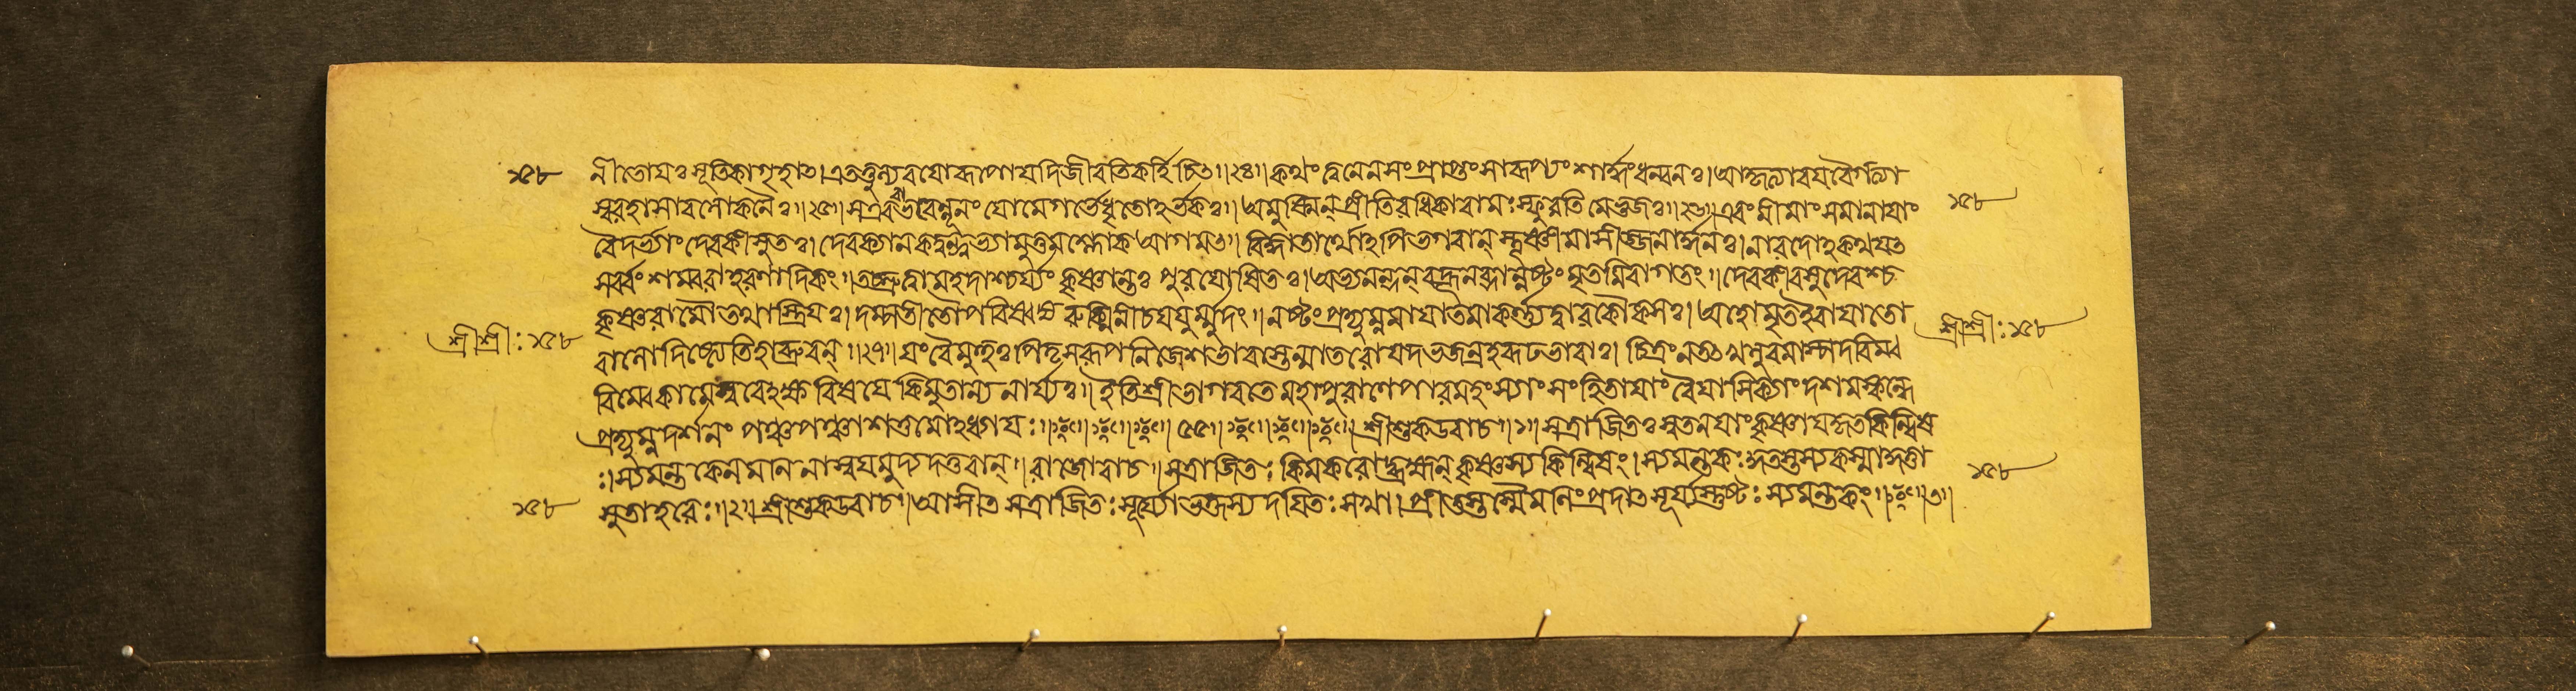 ১৫৮
নীতোযঃ সূতিকাগৃহাৎ।এতত্তুল্যবযোৰূপোযদিজীবতিকৰ্হিচিৎ॥২৪॥কথং ত্বনেনসংপ্রাপ্তং সাৰূপ্যং শাৰ্ঙ্গধন্বনঃ।আকৃত্যাবযবৈৰ্গত্যা
স্বৰহাসাবলোকনৈঃ॥২৫॥সএবভবেন্নূনং যোমেগৰ্ভেধৃতোঽৰ্ভকঃ॥অমুস্মিন্প্রীতিৰধিকাবামঃস্ফুৰতি মেভুজঃ॥২৬॥এবংমীমাংসমানাযাং
১৫৮
বৈদৰ্ভ্যাং দেবকীসুতঃ।দেবক্যানকদুন্দুভ্যামুত্তমশ্লোকআগমৎ॥বিজ্ঞাতাৰ্থোঽপিভগবান্ তূষ্ণীমাসীজ্জনাৰ্দ্দনঃ।নাৰদোঽকথযৎ
সৰ্ব্বং শম্বৰাহৰণাদিকং॥তচ্ছ্রুত্বামহদাশ্চৰ্য্যং কৃষ্ণান্তঃ পুৰযোষিতঃ।অভ্যনন্দন্ বহূনব্দান্নষ্টং মৃতমিবাগতং॥দেবকীবসুদেবশ্চ
কৃষ্ণৰামৌতথাস্ত্রিযঃ।দম্পতীতৌপৰিষ্বজ্য ৰুক্মিণীচযযুৰ্ম্মুদং॥নষ্টংপ্রদ্যুম্নমাযাতমাকৰ্ণ্যদ্বাৰকৌকসঃ।অহোমৃতইবাযাতো
শ্রীশ্রী: ১৫৮
শ্রীশ্রী: ১৫৮
বালোদিষ্ট্যেতিহাব্রুবন্॥২৭॥যংবৈমুহুঃপিতৃসৰূপনিজেশভাবাস্তন্মাতৰোযদভজন্ৰহৰূঢভাবাঃ।চিত্রংনতৎখলুৰমাস্পদবিম্ব
বিম্বেকামেস্মৰেঽক্ষবিষযে কিমুতান্যনাৰ্য্যঃ॥ইতিশ্রীভাগবতেমহাপুৰাণেপাৰমহংস্যাং সংহিতাযাং বৈযাসিক্যাং দশমস্কন্ধে
প্রদ্যুম্নদৰ্শনং পঞ্চপঞ্চাশত্তমোঽধ্যায:॥৫৫॥শ্রীশুকউবাচ॥১॥সত্রাজিতঃস্বতনযাংকৃষ্ণাযকৃতকিল্বিষ
:।স্যমন্তকেনমনিনাস্বযমুদ্যদত্তবান্॥ৰাজোবাচ॥সত্রাজিত: কিমকৰোদ্ব্রহ্মন্ কৃষ্ণস্যকিল্বিষং।স্যমন্তক:কুতস্তস্যকস্মাদ্দত্তা
১৫৮
১৫৮
সুতাহৰে:॥২॥শ্রীশুকউবাচ॥আসীত সত্রাজিত: সূৰ্য্যোভক্তস্য দযিত:সখা।প্রীতস্তস্মৈমনিংপ্রদাৎসূৰ্য্যস্তুষ্ট: স্যমন্তকং॥৩॥